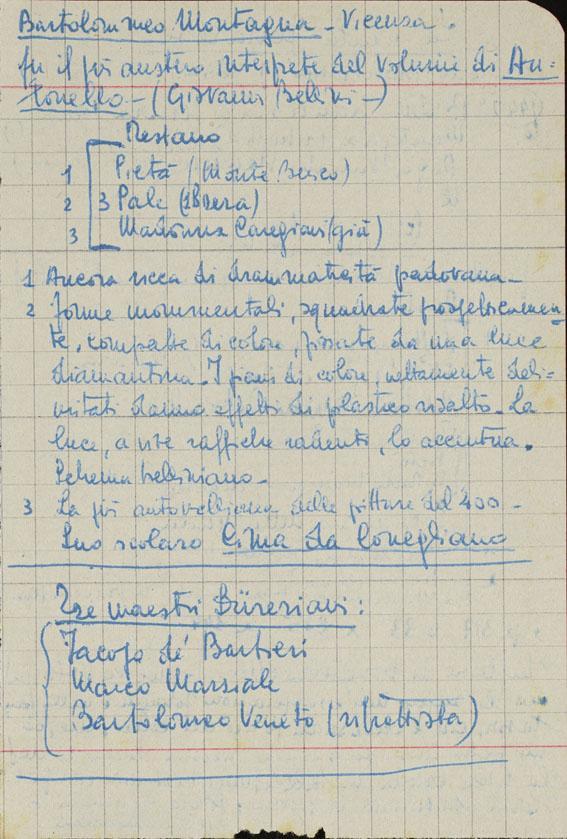 Bartolommeo Montagna - Vicenza.
fu il più austero interprete del volume di An=
tonello - (Giovanni Bellini -)
Restano
1 Pietà (Monte Berico)
2 3 Pale (1 Brera)
3 Madonna Caregiani (già)
1 Ancora ricca di drammaticità padovana -
2 forme monumentali, squadrate prospetticamen-
te, compatte di colore, fissate da una luce
diamantina. I piani di colore, nettamente deli=
mitati danno effetti di plastico risalto. La
luce, a raffiche radenti, lo accentua.
Schema belliniano -
3 La più delle pitture del 400 -
Suo scolaro Cima da Conegliano
Tre maestri Düreriani:
Jacopo dé Barbieri
Marco Marziale
Bartolomeo Veneto (ritrattista)